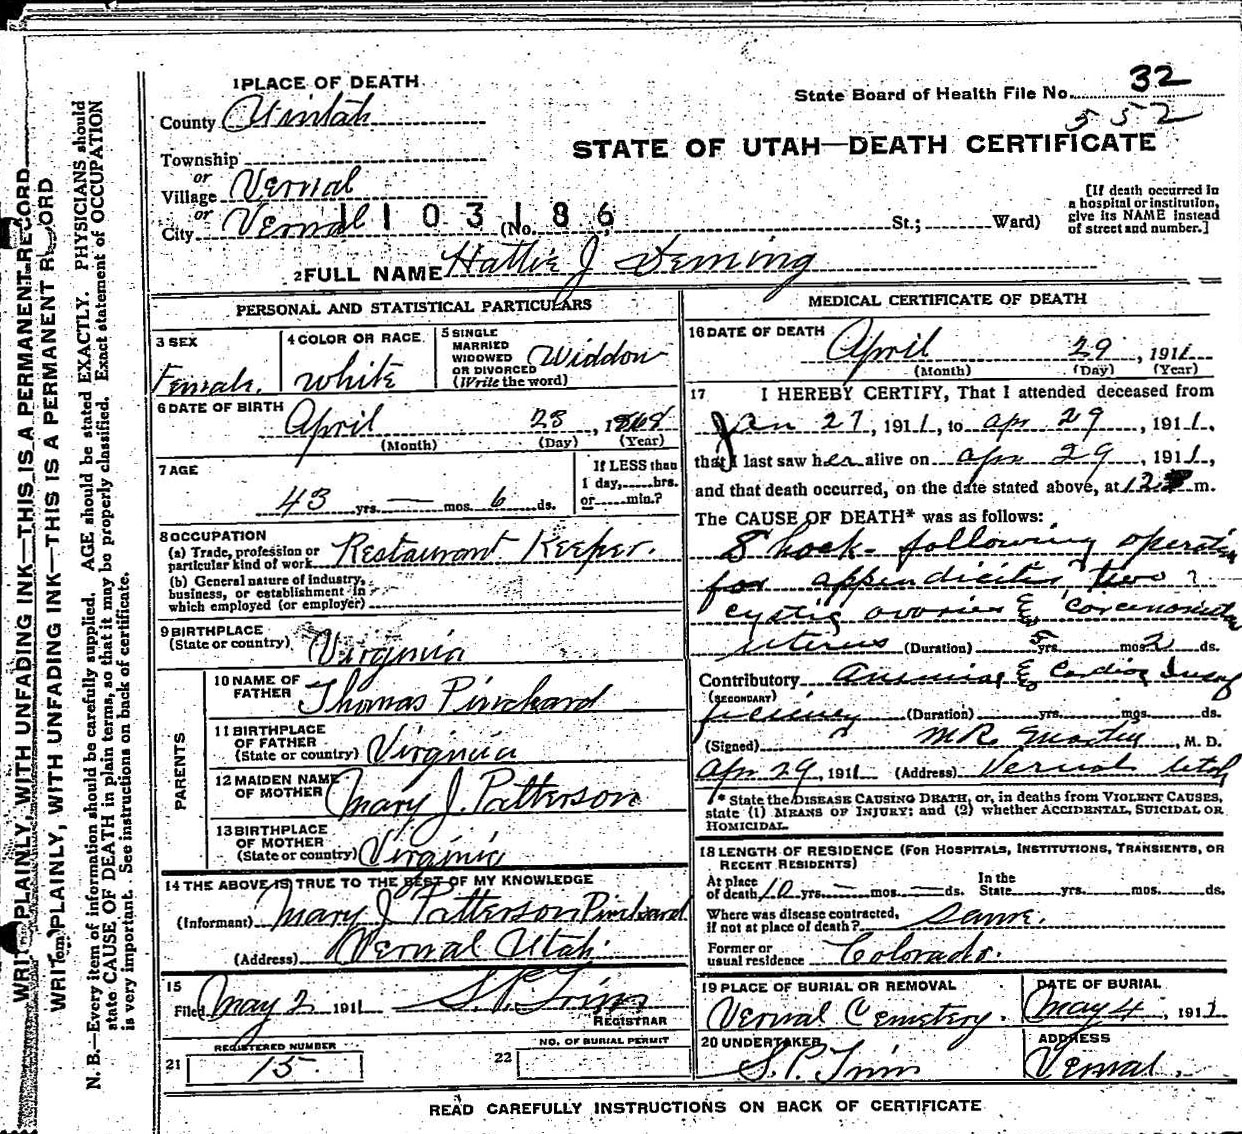 1 PLACE OF DEATH
County Uintah
Township
or
Village Vernal
or
City Vernal (No. St.; Ward)
1103186
State Board of Health File No. 32
552
STATE OF UTAH—DEATH CERTIFICATE
[If death occurred in
a hospital or institution,
give its NAME instead
of street and number.]
2 FULL NAME Hattie J Deming
PERSONAL AND STATISTICAL PARTICULARS
3 SEX
Female.
4 COLOR OR RACE
White
5 SINGLE
MARRIED
WIDOWED
OR DIVORCED
(Write the word)
Widdow
6 DATE OF BIRTH
April 23, 1868
(Month) (Day) (Year)
7 AGE
43 yrs. — mos. 6 ds.
If LESS than
1 day, hrs.
or min.?
8 OCCUPATION
(a) Trade, profession or
particular kind of work Restaurant Keeper.
(b) General nature of industry,
business, or establishment in
which employed (or employer)
9 BIRTHPLACE
(State or country) Virginia
PARENTS
10 NAME OF
FATHER Thomas Pinchard
11 BIRTHPLACE
OF FATHER
(State or country) Virginia
12 MAIDEN NAME
OF MOTHER Mary J. Patterson
13 BIRTHPLACE
OF MOTHER
(State or country) Virginia
14 THE ABOVE IS TRUE TO THE BEST OF MY KNOWLEDGE
(Informant) Mary J Patterson Pinchard
(Address) Vernal Utah.
15
Filed May 2 1911 S. P. Trim
REGISTRAR
REGISTERED NUMBER
21 15
NO. OF BURIAL PERMIT
22
MEDICAL CERTIFICATE OF DEATH
16 DATE OF DEATH
April 29, 1911
(Month) (Day) (Year)
17 I HEREBY CERTIFY, That I attended deceased from
Jan 27, 1911, to Apr 29, 1911,
that I last saw her alive on Apr 29, 1911,
and that death occurred, on the date stated above, at 12 m.
The CAUSE OF DEATH* was as follows:
Shock following operation
for appendicitis, two
cystic ovaries &
uterus (Duration) 5 yrs. mos. 2 ds.
Contributory Anemia & Cardiac Insuf
(SECONDARY)
ficiency (Duration) yrs. mos. ds.
(Signed) M.D.
Apr 29, 1911 (Address) Vernal Utah
* State the DISEASE CAUSING DEATH, or, in deaths from VIOLENT CAUSES,
state (1) MEANS OF INJURY; and (2) whether ACCIDENTAL, SUICIDAL OR
HOMICIDAL.
18 LENGTH OF RESIDENCE (FOR HOSPITALS, INSTITUTIONS, TRANSIENTS, OR
RECENT RESIDENTS)
At place
of death 10 yrs. — mos. — ds. In the
State yrs. mos. ds.
Where was disease contracted,
if not at place of death? Same.
Former or
usual residence Colorado.
19 PLACE OF BURIAL OR REMOVAL
Vernal Cemetery.
DATE OF BURIAL
May 4, 1911
20 UNDERTAKER
S. P. Trim
ADDRESS
Vernal.
READ CAREFULLY INSTRUCTIONS ON BACK OF CERTIFICATE
WRITE PLAINLY, WITH UNFADING INK—THIS IS A PERMANENT RECORD
WRITE PLAINLY, WITH UNFADING INK—THIS IS A PERMANENT RECORD
N. B.—Every item of information should be carefully supplied. AGE should be stated EXACTLY. PHYSICIANS should
state CAUSE OF DEATH in plain terms, so that it may be properly classified. Exact statement of OCCUPATION
is very important. See instructions on back of certificate.